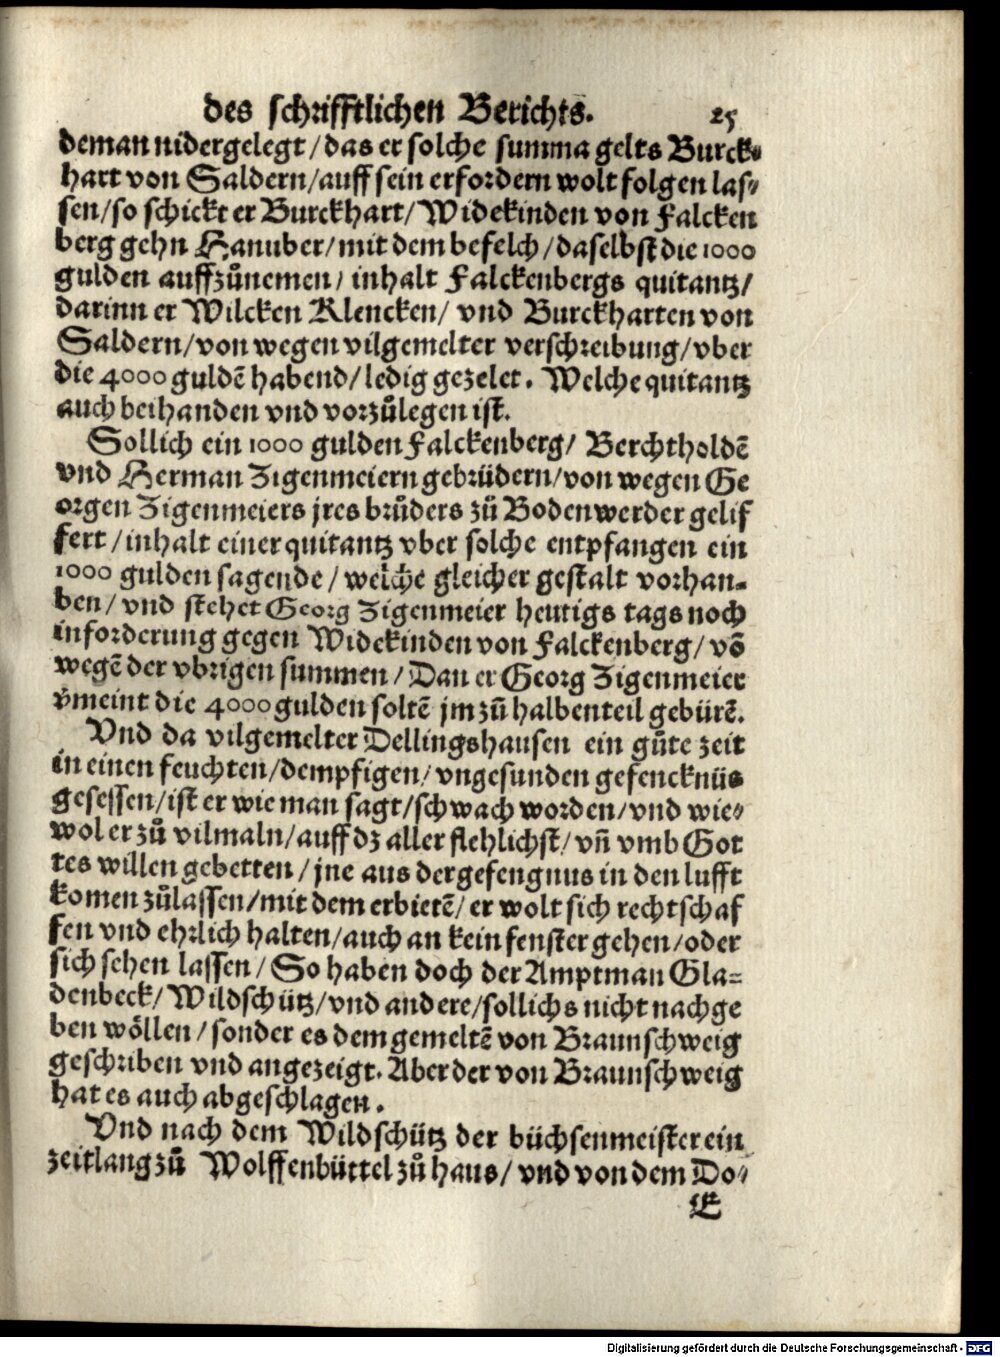 des schrifftlichen Berichts. 25
deman nidergelegt/das er solche summa gelts Burck⸗
hart von Saldern/auff sein erfordern wolt folgen las⸗
sen/so schickt er Burckhart/Widekinden von Falcken
berg gehn Hanuber/mit dem befelch/daselbst die 1000
gulden auffzůnemen/ inhalt Falckenbergs quitantz/
darinn er Wilcken Klencken/ vnd Burckharten von
Saldern/von wegen vilgemelter verschreibung/vber
die 4000 guldē habend/ledig gezelet. Welche quitantz
auch beihanden vnd vorzůlegen ist.
Sollich ein 1000 gulden Falckenberg/ Berchtholdē
vnd Herman Zigenmeiern gebrüdern/von wegen Ge
orgen Zigenmeiers jres brůders zů Bodenwerder gelif
fert/inhalt einer quitantz vber solche entpfangen ein
1000 gulden sagende/welche gleicher gestalt vorhan⸗
ben/vnd stehet Georg Zigenmeier heutigs tags noch
inforderung gegen Widekinden von Falckenberg/ võ
wegē der vbrigen summen/Dan er Georg Zigenmeier
v̄meint die 4000 gulden soltē jm zů halbenteil gebürē.
Vnd da vilgemelter Dellingshausen ein gůte zeit
in einen feuchten/dempfigen/vngesunden gefencknüs
gesessen/ist er wie man sagt/schwach worden/vnd wie⸗
wol er zů vilmaln/auff dz aller flehlichst/vn̄ vmb Got
tes willen gebetten/jne aus der gefengnus in den lufft
komen zůlassen/mit dem erbietē/er wolt sich rechtschaf
fen vnd ehrlich halten/auch an kein fenster gehen/oder
sich sehen lassen/So haben doch der Amptman Gla⸗
denbeck/Wildschütz/vnd andere/sollichs nicht nachge
ben wöllen/sonder es dem gemeltē von Braunschweig
geschriben vnd angezeigt. Aber der von Braunschweig
hat es auch abgeschlagen.
Vnd nach dem Wildschütz der büchsenmeister ein
zeitlang zů Wolffenbüttel zů haus/vnd von dem Do⸗
E
Digitalisierung gefördert durch die Deutsche Forschungsgemeinschaft - DFG